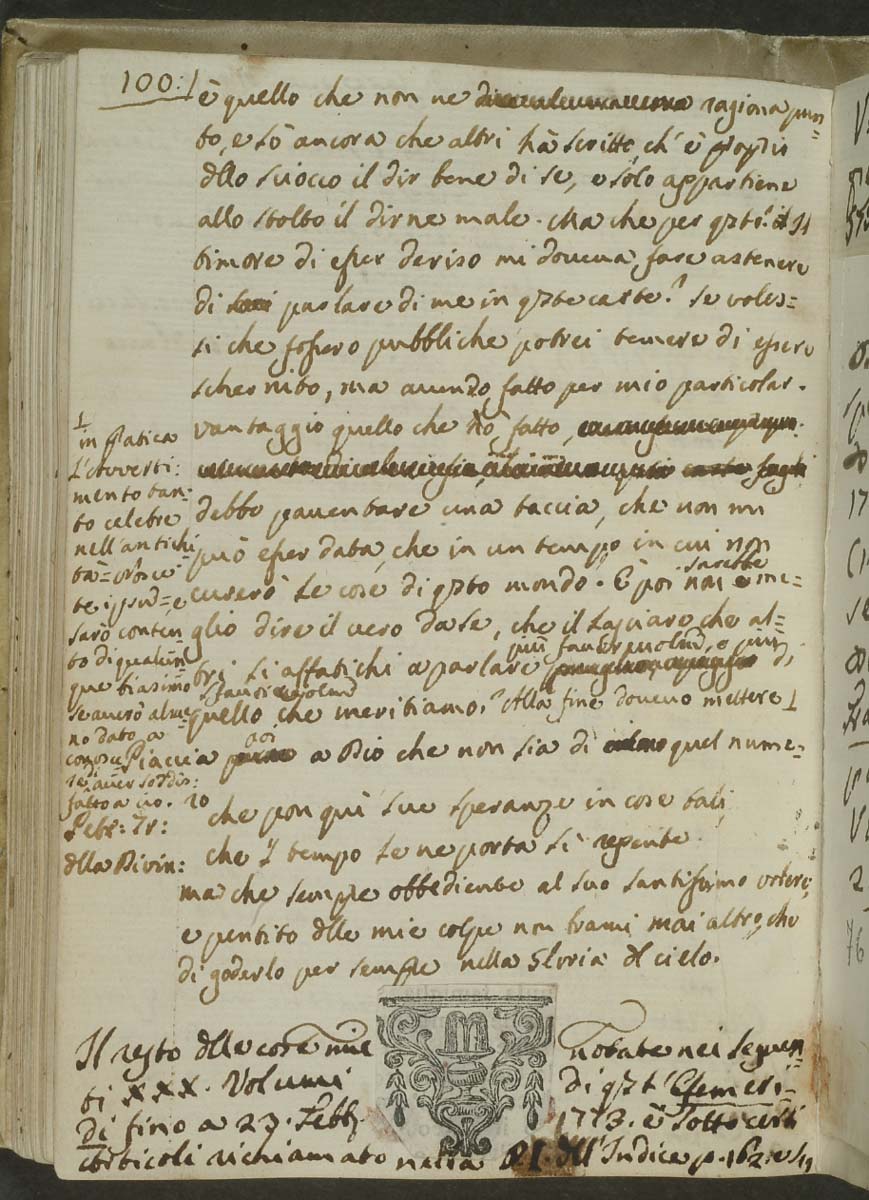 100:
è quello che non ne ragiona pun=
to, e sò ancora che altri hà scritto, ch' è proprio
dllo sciocco il dir bene di se, e solo appartiene
allo stolto il dirne male. Ma che per qsto? il
timore di esser deriso mi doveva fare astenere
di parlare di me in qste carte? Se voles=
si che fossero pubbliche potrei temere di essere
schernito, ma avendo fatto per mio particolar.
vantaggio quello che hò fatto,
debbo paventare una taccia, che non mi
può esser data, che in un tempo in cui non
curerò le cose di qsto mondo. E poi non sarebbe me=
glio dire il vero da se, che il lasciare che al=
tri si affatichi a parlare più favorevolmd, o più di
sfavorevolmd
quello che meritiamo? Alla fine dovevo mettere
Piaccia poi a Dio che non sia di quel nume=
ro
che pon quì sue speranze in cose tali,
che 'l tempo se ne porta sì repente.
ma che sempre obbediente al suo santissimo volere,
e pentito dlle mie colpe non brami mai altro, che
di goderlo per sempre nella Gloria dl cielo.
in pratica
l'Avverti:
mento tan=
to celebre
nell'antichi
tà=
te ipsud=e
sarò conten
to di qualun
que biasimo
se averò alme
no dato a
conoscere
aver soddis:
fatto a cio.
Petr: Tr:
dlla Divin:
Il resto dlle cose mie notate nei seguen=
ti XXX. Volumi di qst' Efemeri=
di fino a 23. Febb. 1773. è sotto certi
Articoli richiamato nella dell'Indice p. 162. e